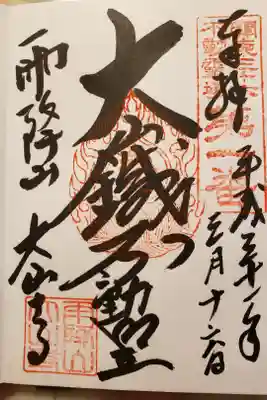 関東三十六
不動霊場
第一番
奉拝 平成三十一年
三月十六日
大山鐵不動
雨降山 大山寺